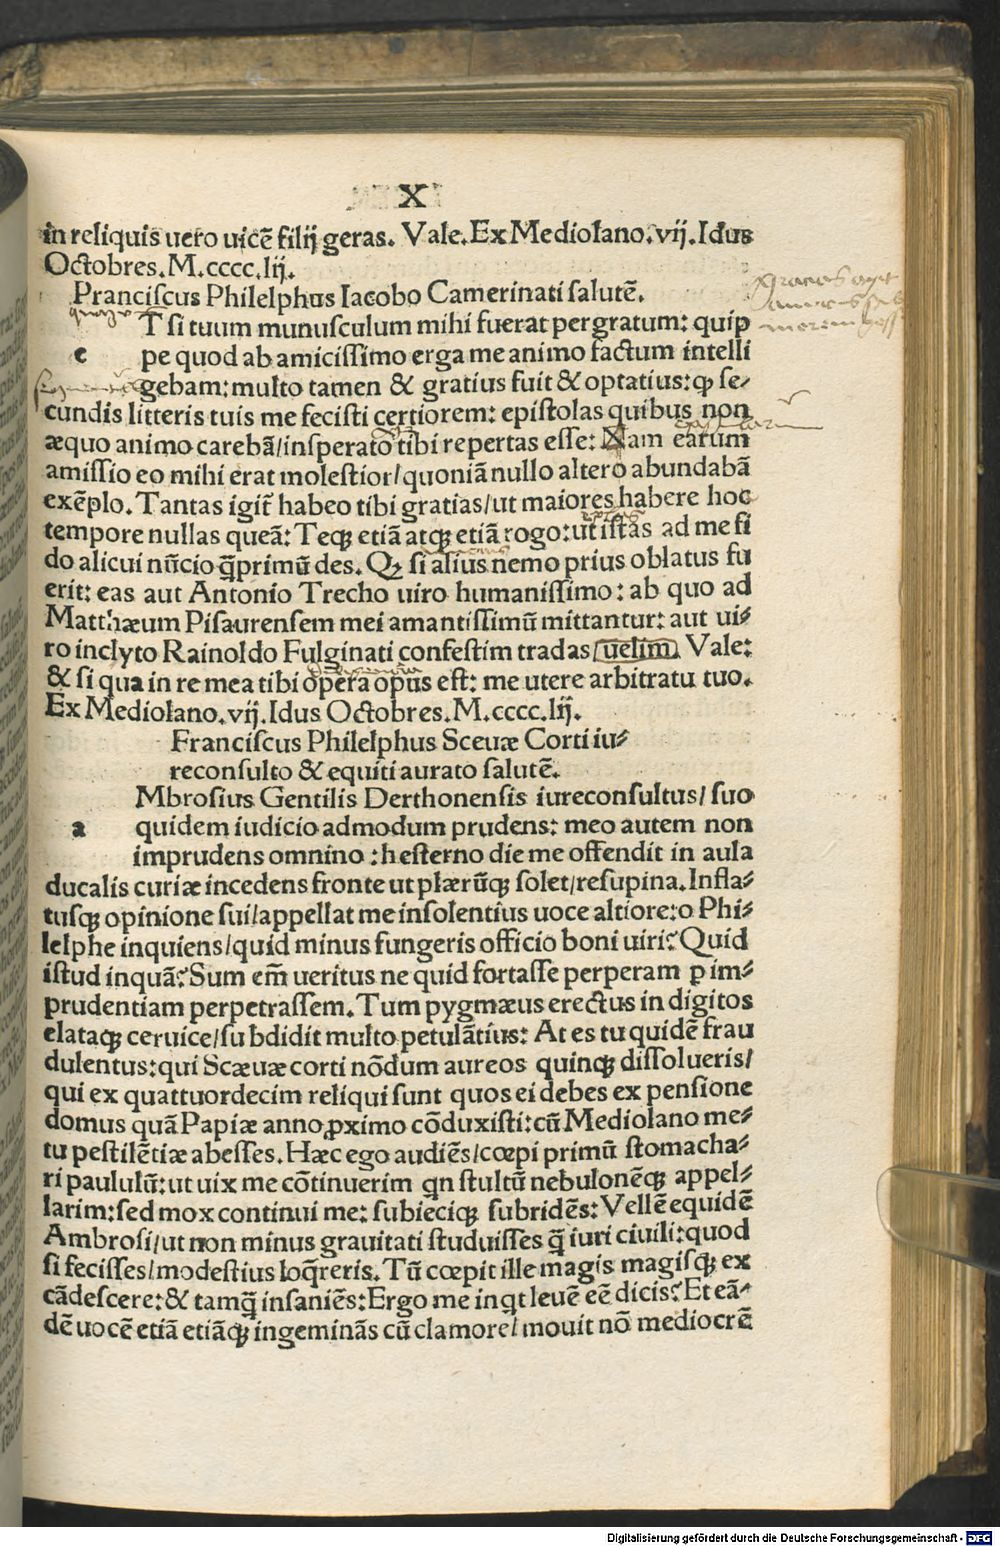 X
in reliquis uero uicē filij geras. Vale. Ex Mediolano. vij. Idus
Octobres. M. cccc. lij.
Pranciscus Philelphus Iacobo Camerinati salutē.
T si tuum munusculum mihi fuerat pergratum: quip
e pe quod ab amicissimo erga me animo factum intelli
gebam: multo tamen & gratius fuit & optatius: ꝙ se⸗
cundis litteris tuis me fecisti certiorem: epistolas quibus non
æquo animo carebā/insperato tibi repertas esse: Nam earum
amissio eo mihi erat molestior/quoniā nullo altero abundabā
exēplo. Tantas igit̄ habeo tibi gratias/ut maiores habere hoc
tempore nullas queā: Teqꝫ etiā atqꝫ etiā rogo: ut istas ad me fi
do alicui nūcio q̄primū des. Qꝫ si alius nemo prius oblatus fu
erit: eas aut Antonio Trecho uiro humanissimo: ab quo ad
Matthæum Pisaurensem mei amantissimū mittantur: aut ui⸗
ro inclyto Rainoldo Fulginati confestim tradas uelim. Vale:
& si qua in re mea tibi opera opus est: me utere arbitratu tuo.
Ex Mediolano. vij. Idus Octobres. M. cccc. lij.
Franciscus Philelphus Sceuæ Corti iu⸗
reconsulto & equiti aurato salutē.
Mbrosius Gentilis Derthonensis iureconsultus/suo
a quidem iudicio admodum prudens: meo autem non
imprudens omnino: hesterno die me offendit in aula
ducalis curiæ incedens fronte ut plærūqꝫ solet/resupina. Infla⸗
tusqꝫ opinione sui/appellat me insolentius uoce altiore: o Phi⸗
lelphe inquiens/quid minus fungeris officio boni uiri? Quid
istud inquā? Sum em̄ ueritus ne quid fortasse perperam ꝑ im⸗
prudentiam perpetrassem. Tum pygmæus erectus in digitos
elataqꝫ ceruice/subdidit multo petulātius: At es tu quidē frau
dulentus: qui Scæuæ corti nōdum aureos quinqꝫ dissolueris/
qui ex quattuordecim reliqui sunt quos ei debes ex pensione
domus quā Papiæ anno ꝓximo cōduxisti: cū Mediolano me⸗
tu pestilētiæ abesses. Hæc ego audiēs/cœpi primū stomacha⸗
ri paululū: ut uix me cōtinuerim qn stultū nebulonēqꝫ appel⸗
larim: sed mox continui me: subieciqꝫ subridēs: Vellē equidē
Ambrosi/ut non minus grauitati studuisses q̄ iuri ciuili: quod
si fecisses/modestius loq̄reris. Tū cœpit ille magis magisqꝫ ex
cādescere: & tamq̄ insaniēs: Ergo me inqt leuē eē dicis? Et eā⸗
dē uocē etiā etiāqꝫ ingeminās cū clamore/mouit nō mediocrē
Digitalisierung gefördert durch die Deutsche Forschungsgemeinschaft - DFG